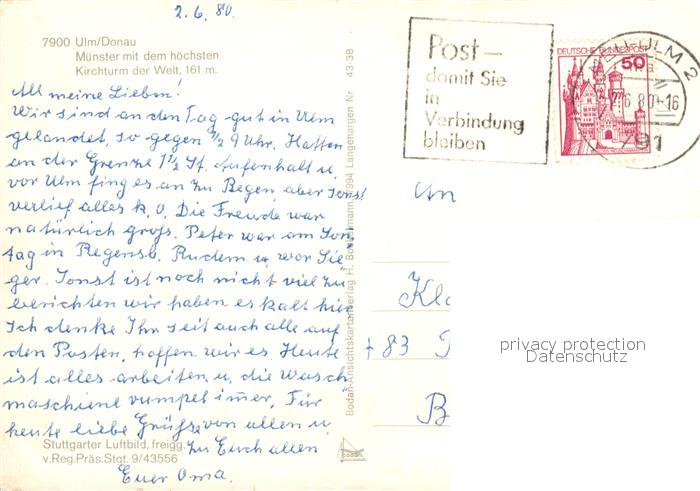 2.6.80.
7900 Ulm/Donau
Münster mit dem höchsten
Kirchturm der Welt, 161 m.
All meine Lieben!
Wir sind an den Tag gut in Ulm
gelandet, so gegen ½ 9 Uhr. Hatten
an der Grenze 1½ St. Aufenhalt u.
vor Ulm fing es an zu Regen, aber sonst
verlief alles k.o. Die Freude war
natürlich groß. Peter war am Son
tag in Regensb. Rudern u war Sie
ger. Sonst ist noch nicht viel zu
berichten wir haben es kalt hier
Ich denke Ihr seit auch alle auf
den Posten, hoffen wir es Heute
ist alles arbeiten u. die Wasch
maschiene rumpel imer, Für
heute liebe Grüße von allen u.
zu Euch allen
Euer Oma.
Stuttgarter Luftbild, freigg.
v.Reg.Präs.Stgt. 9/43556
Bodan-Ansichtskartenverlag H. Bockelmann 7994 Langenargen Nr 43 38
Post –
damit Sie
in
Verbindung
bleiben
DEUTSCHE BUNDESPOST
50
NEU-ULM 2
2.6.80-16
791
An
Kl
+ 83
B
privacy protection
Datenschutz